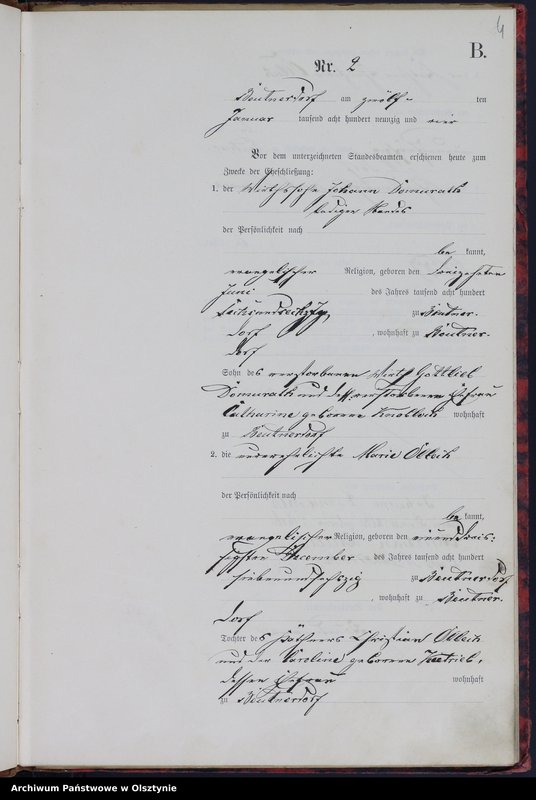 4
B.
Nr. 2
Beutnerdorf am zwölf- ten
Januar tausend acht hundert neunzig und vier
Vor dem unterzeichneten Standesbeamten erschienen heute zum
Zwecke der Eheschließung:
1. der Wirthssohn Johann Domurath
ledigen Standes
der Persönlichkeit nach
be kannt,
evangelischer Religion, geboren den dreizehnten
Juni des Jahres tausend acht hundert
sechsundsechszig zu Beutner-
dorf , wohnhaft zu Beutner-
dorf
Sohn des verstorbenen Wirth Gottlieb
Domurath und dessen verstorbenen Ehefrau
Catharine geborene wohnhaft
zu Beutnerdorf
2. die unverehelichte Marie
der Persönlichkeit nach
be kannt,
evangelischer Religion, geboren den einunddreis-
sigsten December des Jahres tausend acht hundert
siebenundsechszig zu Beutnerdorf
, wohnhaft zu Beutner-
dorf
Tochter des Käthners Christian
und der Caroline geborene
dessen Ehefrau wohnhaft
zu Beutnerdorf
Archiwum Państwowe w Olsztynie